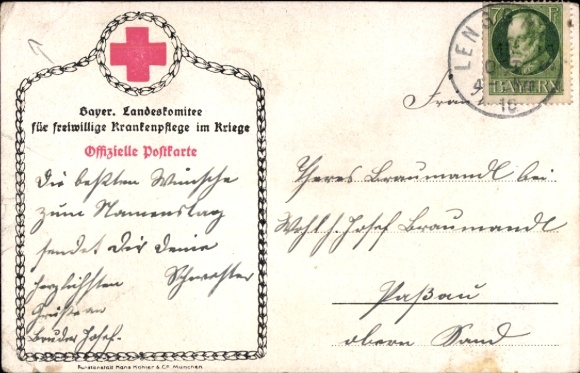 Bayer. Landeskomitee
für freiwillige Krankenpflege im Kriege
Offizielle Postkarte
Die besten Wünsche
zum Namenstag
sendet Dir Deine
herzlichsten Schwester
Grüße an
Bruder Josef.
Kunstanstalt Hans Köhler & Co. München
LEN
4
16
BAYERN
Frau
Theres Braumandl bei
Wohl. h. Josef Braumandl
Paßau
obern Sand